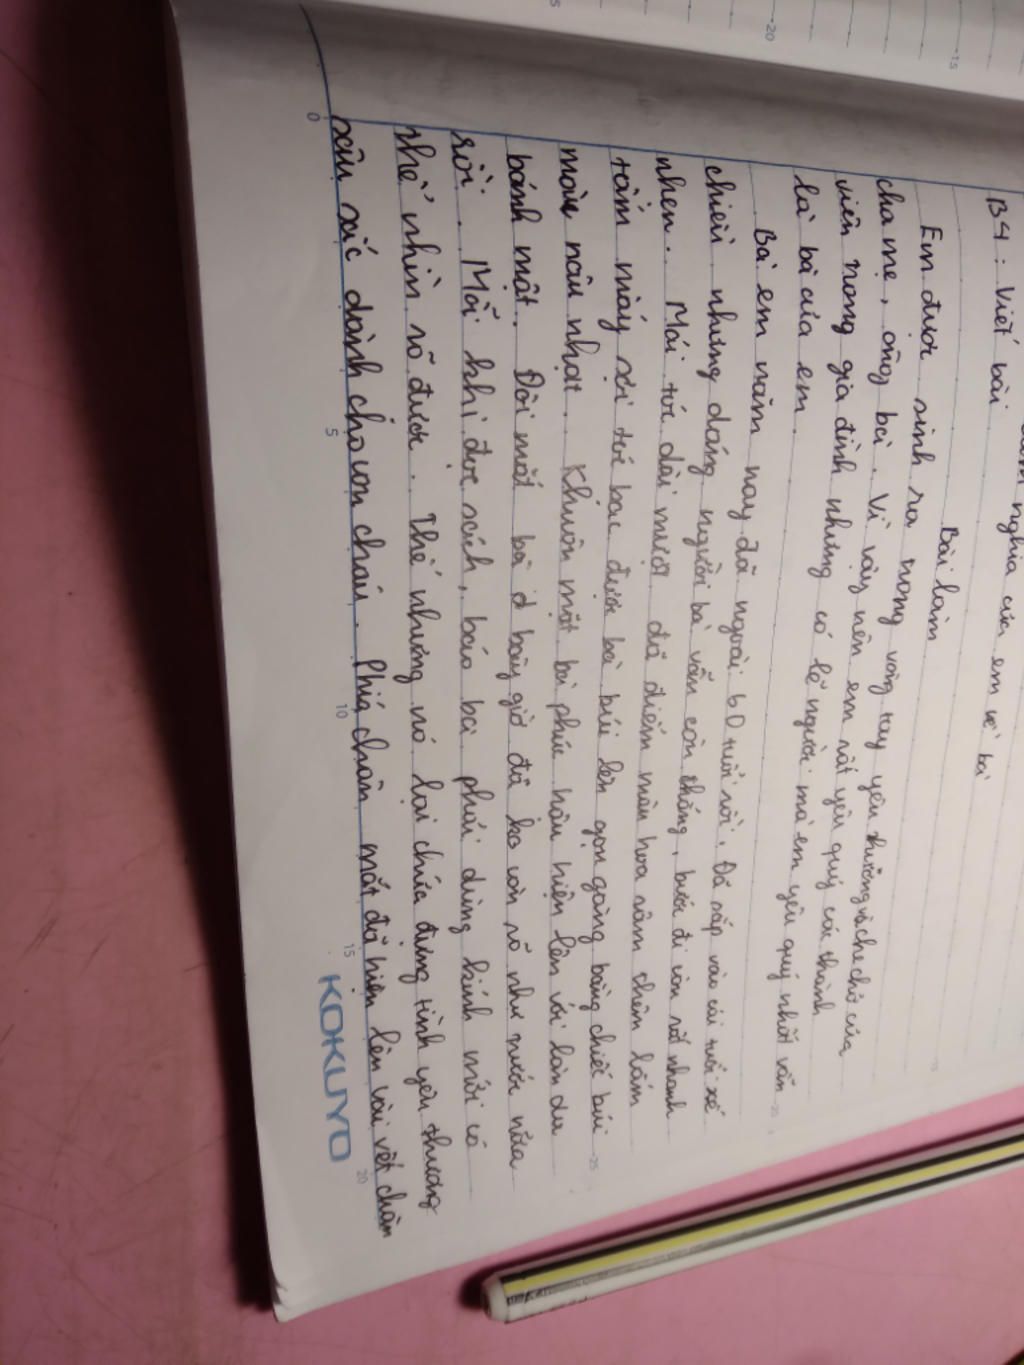 nghĩa của em về bà
B4 : Viết bài
Bài làm
Em được sinh ra trong vòng tay yêu thương và che chở của
cha mẹ, ông bà. Vì vậy nên em rất yêu quý cái thành
viên trong gia đình nhưng có lẽ người mà em yêu quý nhất vẫn
là bà của em.
Bà em năm nay đã ngoài 60 tuổi rồi. Đã sắp vào cái tuổi xế
chiều nhưng dáng người bà vẫn còn thẳng, bước đi còn rất nhanh
nhẹn. Mái tóc dài mượt đã điểm màu hoa râm chêm lấm
tấm mấy sợi tóc bạc được bà búi lên gọn gàng bằng chiếc búi
màu nâu nhạt. Khuôn mặt bà phúc hậu hiện lên với làn da
bánh mật. Đôi mắt bà bây giờ đã ko còn rõ như trước nữa
rồi. Mỗi khi đọc sách, báo bà phải dùng kính mới có
thể nhìn rõ được. Thế nhưng nó lại chứa đựng tình yêu thương
sâu sắc dành cho con cháu. Phía chân mắt đã hiện lên vài vết chân
0
5
10
15
20
KOKUYO
20
15
25